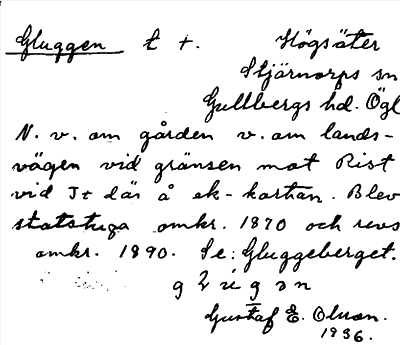 Gluggen t +. Högsäter
Stjärnorps sn
Gullbergs hd. Ögl
N. v. om gården v. om lands-
vägen vid gränsen mot Rist
vid It där å ek-kartan. Blev
statstuga omkr. 1870 och revs
omkr. 1890. Se: Gluggeberget.
Gustaf E. Olsson.
1936.